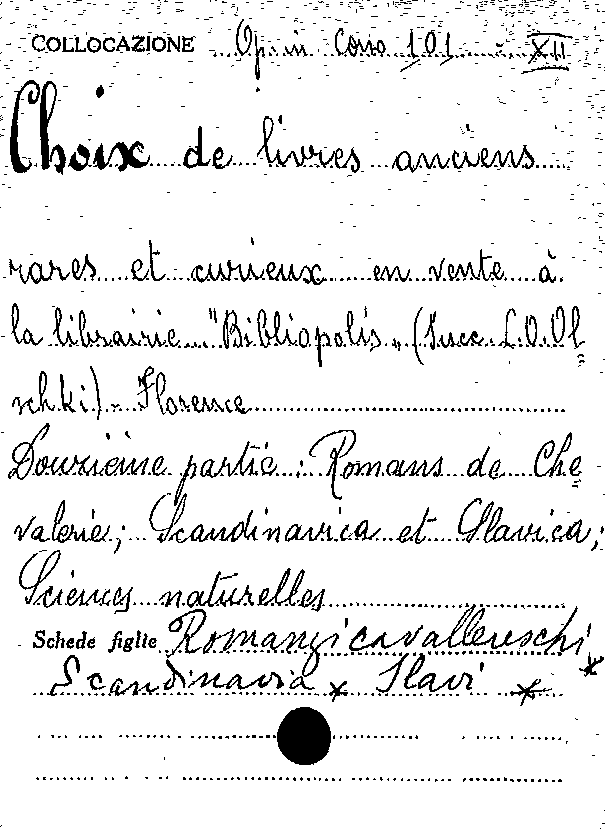 COLLOCAZIONE Op. in Corso 101 - XII
Choix de livres anciens
rares et curieux en vente à
la librairie "Bibliopolis„ (Succ. L.O. Ol=
schki) - Florence
Douzième partie : Romans de Che=
valerie; Scandinavica et Slavica;
Sciences naturelles
Schede figlie Romanzi cavallereschi *
Scandinavia * Slavi *